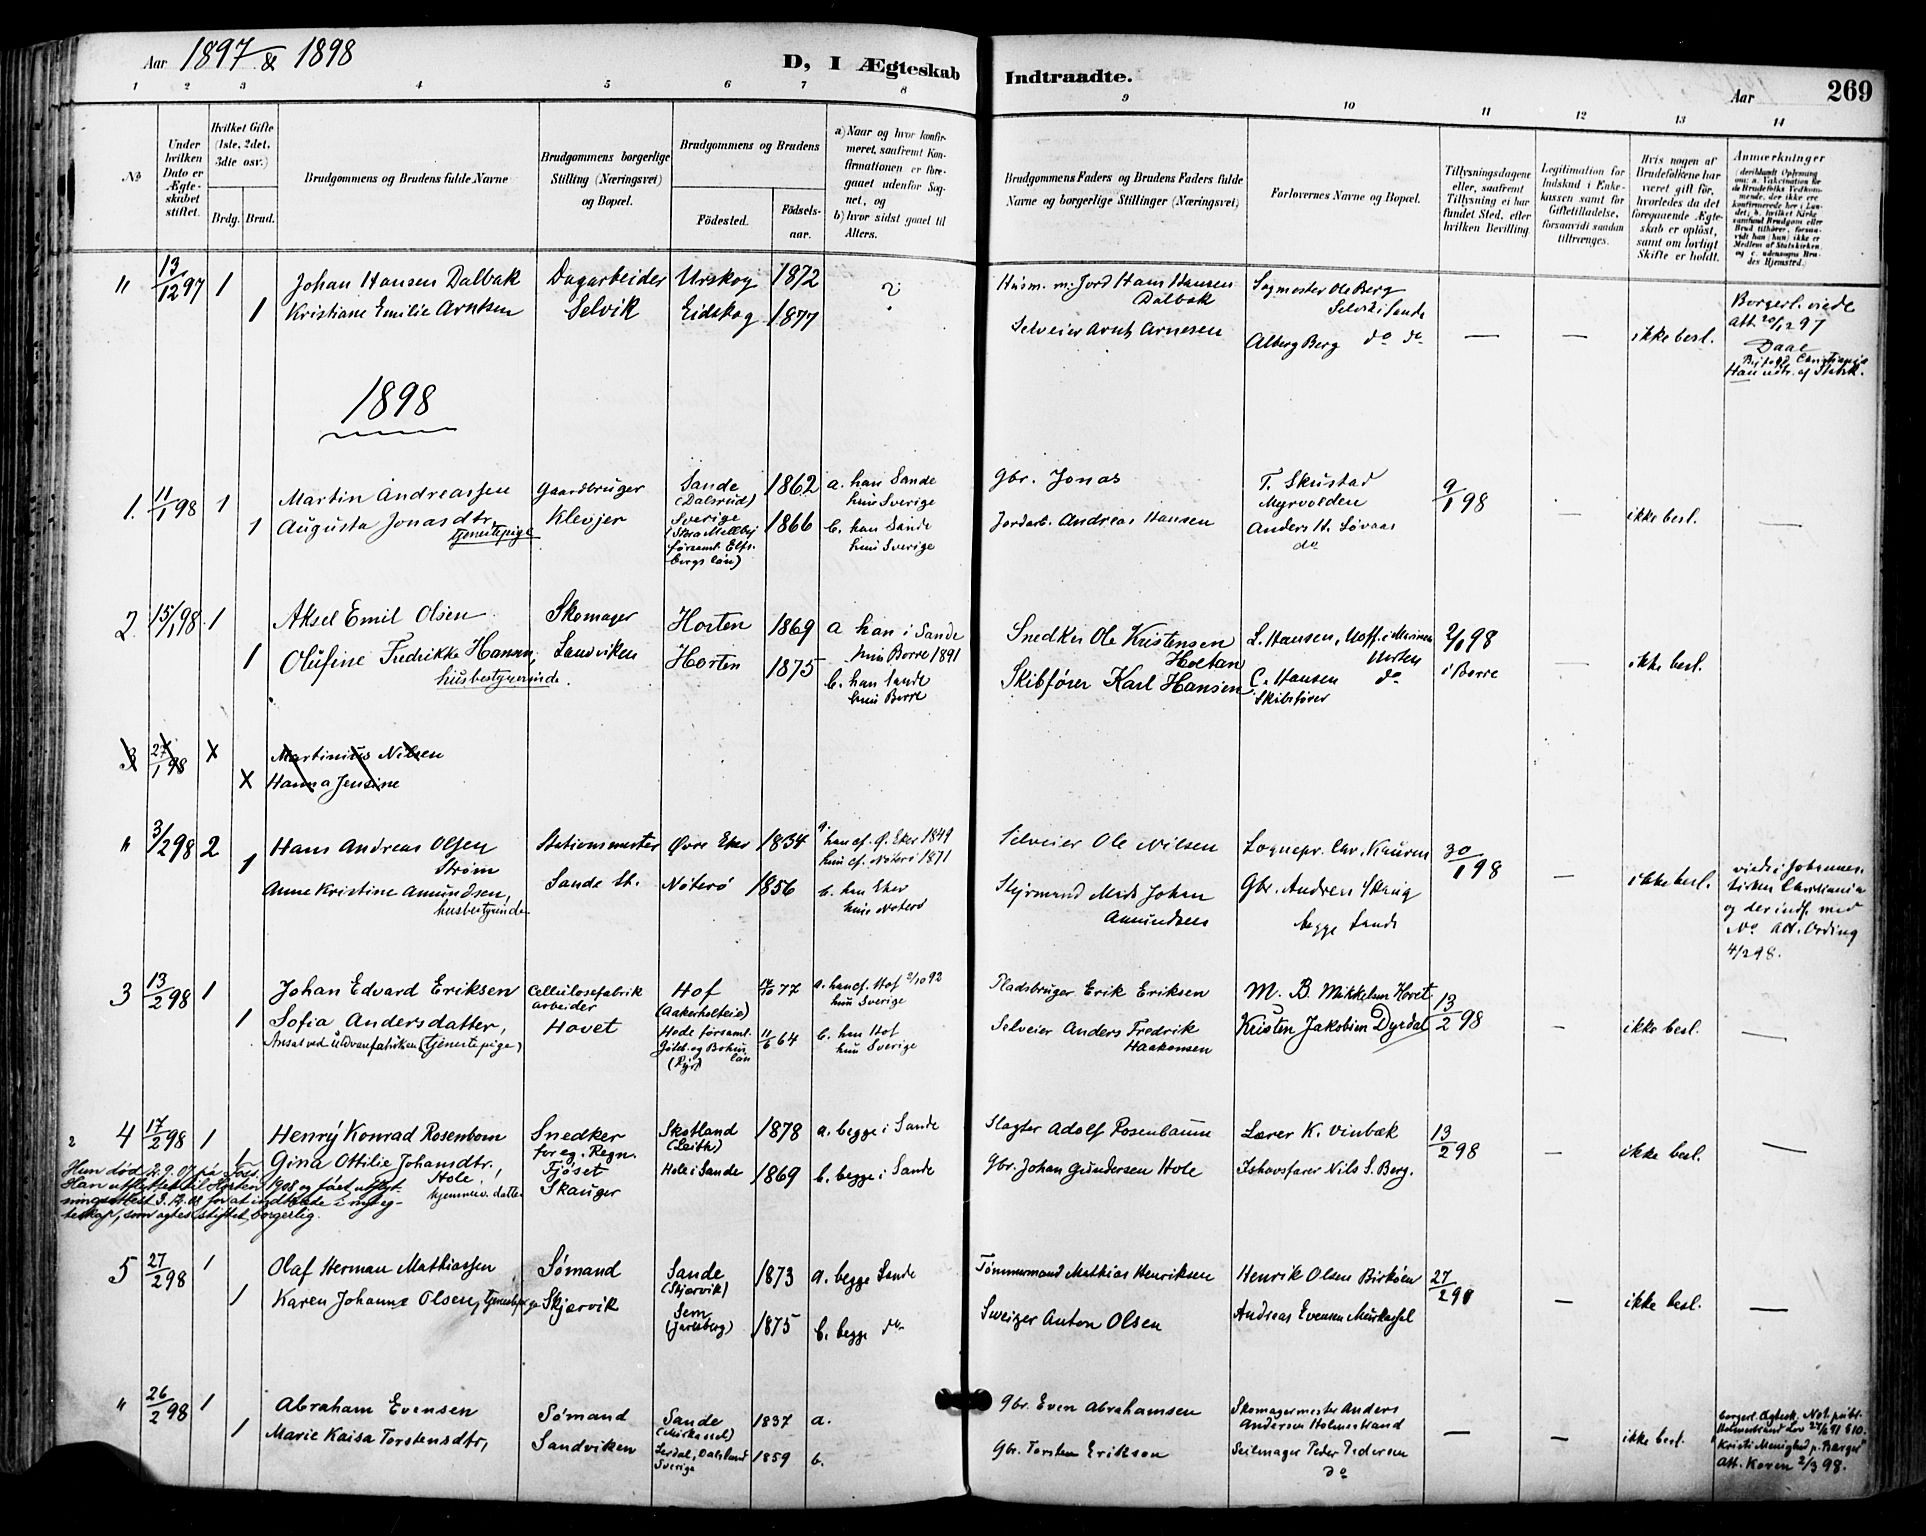 Aar 1897 & 1898
D, I Ægteskab
Indtraadte.
Aar
269
1 2 3 4 5 6 7 8 9 10 11 12 13 14
No
Under hvilken Dato er Ægteskabet stiftet.
Hvilket Gifte (1ste, 2det, 3die osv.)
Brdg. Brud.
Brudgommens og Brudens fulde Navne
Brudgommens borgerlige Stilling (Næringsvei) og Bopæl.
Brudgommens og Brudens
Fødested.
Fødselsaar.
a) Naar og hvor konfirmeret, saafremt Konfirmationen er foregaaet udenfor Sognet, og
b) hvor sidst gaaet til Alters.
Brudgommens Faders og Brudens Faders fulde Navne og borgerlige Stillinger (Næringsvei)
Forlovernes Navne og Bopæl.
Tillysningsdagene eller, saafremt Tillysning ei har fundet Sted, efter hvilken Bevilling
Legitimation for Indskud i Enkekassen samt for Giftetilladelse, forsaavidt saadan tiltrænges.
Hvis nogen af Brudefolkene har været gift før, hvorledes da det foregaaende Ægteskab er opløst, samt om lovligt Skifte er holdt.
Anmærkninger
" 13/12 97 1 Johan Hansen Dalbak Dagarbeider Urskog 1872 ?
1 Kristiane Emilie Arntsen Selvik Eidskog 1877
Husm. m. Jord Hans Hansen Dalbak
Selveier Arnt Arnesen
Sagmester Ole Berg
Selvik i Sande
Alberg Berg do do
— — ikke besl.
Borgerl. viede
Att. 20/12 97
Daae
1898
1. 11/1 98 1 Martin Andreassen Gaardbruger Sande (Dalsrud) 1862 a. han Sande
hun Sverige
1 Augusta Jonasdtr. tjenestepige Klevjer Sverige (Stora Mellby församl. Elfsborgs län) 1866 b. han Sande
hun Sverige
Gbr. Jonas
Jordarb. Andreas Hansen
T. Skustad
Myrvolden
Anders H. Løvaas
do
9/1 98 — ikke besl. —
2. 15/1 98 1 Aksel Emil Olsen Skomager Horten 1869 a han i Sande
hun Borre 1891
1 Olufine Fredrikke Hansen, husbestyrerinde. Sandviken Horten 1875 b. han Sande
hun Borre
Snedker Ole Kristensen Holtan
Skibfører Karl Hansen
L. Hansen, Uoff. i Marinen
Horten
C. Hansen do
Skibsfører
2/1 98
i Borre
— ikke besl.
3 27/1 98 X Martinius Nilsen
X Hanna Jensine
" 3/2 98 2 Hans Andreas Olsen Strøm Stationsmester Øvre Eker 1834 a. han cf. Ø. Eker 1849
hun cf. Nøterø 1871
1 Anne Kristine Amundsen, husbestyrinde Sande St. Nøterø 1856 b. han Eker
hun Nøterø
Selveier Ole Nilsen
Styrmand Mads Johan Amundsen
Sognepr. Chr. Kauren
Gbr. Andreas Skaug
begge Sande
30/1 98 — ikke besl.
viede i Johanneskirken Christiania
og der indf. med
No Att. Ording
4/2 98.
3 13/2 98 1 Johan Edvard Eriksen Cellulosefabrikarbeider Hof (Aakerholteie) 77 a. han cf. Hof 2/10 92
hun Sverige
1 Sofia Andersdatter, Ansat ved Uldvarefabriken (tjenestepige) Hovet Hede församl. Götb. og Bohus län 11/6 64 b. han Hof
hun Sverige
Pladsbruger Erik Eriksen
Selveier Anders Fredrik Haakonsen
M. B. Mikkelsen Hovet
Kristen Jakobsen Dyrdal
13/2 98 — ikke besl. —
4 17/2 98 1 Henry Konrad Rosenbom Snedker Skotland (Leith) 1878 a. begge i Sande
1 Gina Ottilie Johansdtr. Hole, hjemmev. datter foreg. Regn. Tjöset Skauger Hole i Sande 1869 b. begge i Sande
Slagter Adolf Rosenbaum
Gbr. Johan Gundersen Hole
Lærer K. Vinbæk
Ishavsfarer Nils S. Berg.
13/2 98 — ikke besl. —
Hun død 2.9.07 på Toes.
Han utflyttet til Horten 1908 og fåat utflytningsattest 3.12.08 for at indtræde i nyt egteskap, som agtes stiftet borgerlig.
5 27/2 98 1 Olaf Herman Mathiassen Sømand Sande (Skjærvik) 1873 a. begge Sande
1 Karen Johanne Olsen, tjenestepige Skjærvik Sem (Jarlsberg) 1875 b. begge do
Tømmermand Mathias Henriksen
Sveizer Anton Olsen
Henrik Olsen Birköen
Andreas Evensen
27/2 98 — ikke besl. —
" 26/2 98 1 Abraham Evensen Sømand Sande 1837 a.
1 Marie Kaisa Torstensdtr, Sandviken Lerdal, Dalsland Sverige 1859 b.
Gbr. Even Abrahamsen
Gbr. Torsten Erikson
Skomagermester Anders
Andersen Holmestrand
Seilmager Peder Pedersen
do
— — ikke besl.
borgerl. Ægtesk. Not. publ.
Holmestrand Lov 27/6 91 § 10.
Kristi Menighed p. Berger
Att. Koren 2/3 98.